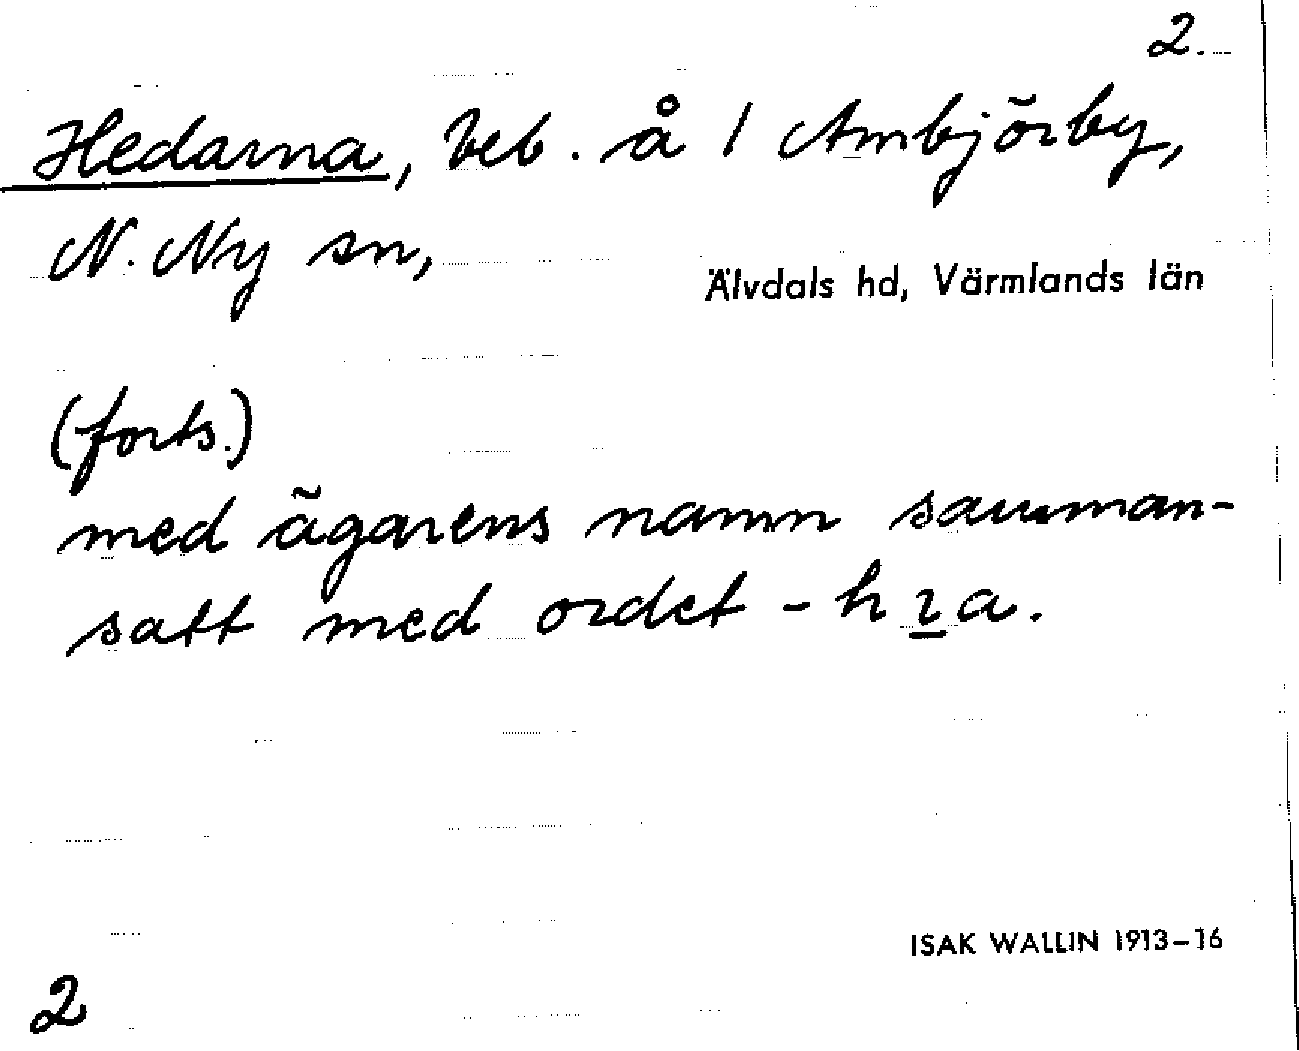 2.
Hedarna, beb. å 1 Ambjörby,
N. Ny sn,
Älvdals hd, Värmlands län
(forts.)
med ägarens namn samman-
satt med ordet - hɿa.
ISAK WALLIN 1913–16
2